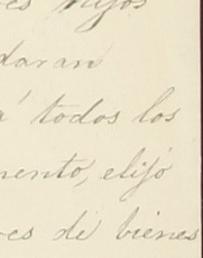 es hijos
daran
a todos los
mento, elijo
es de bienes